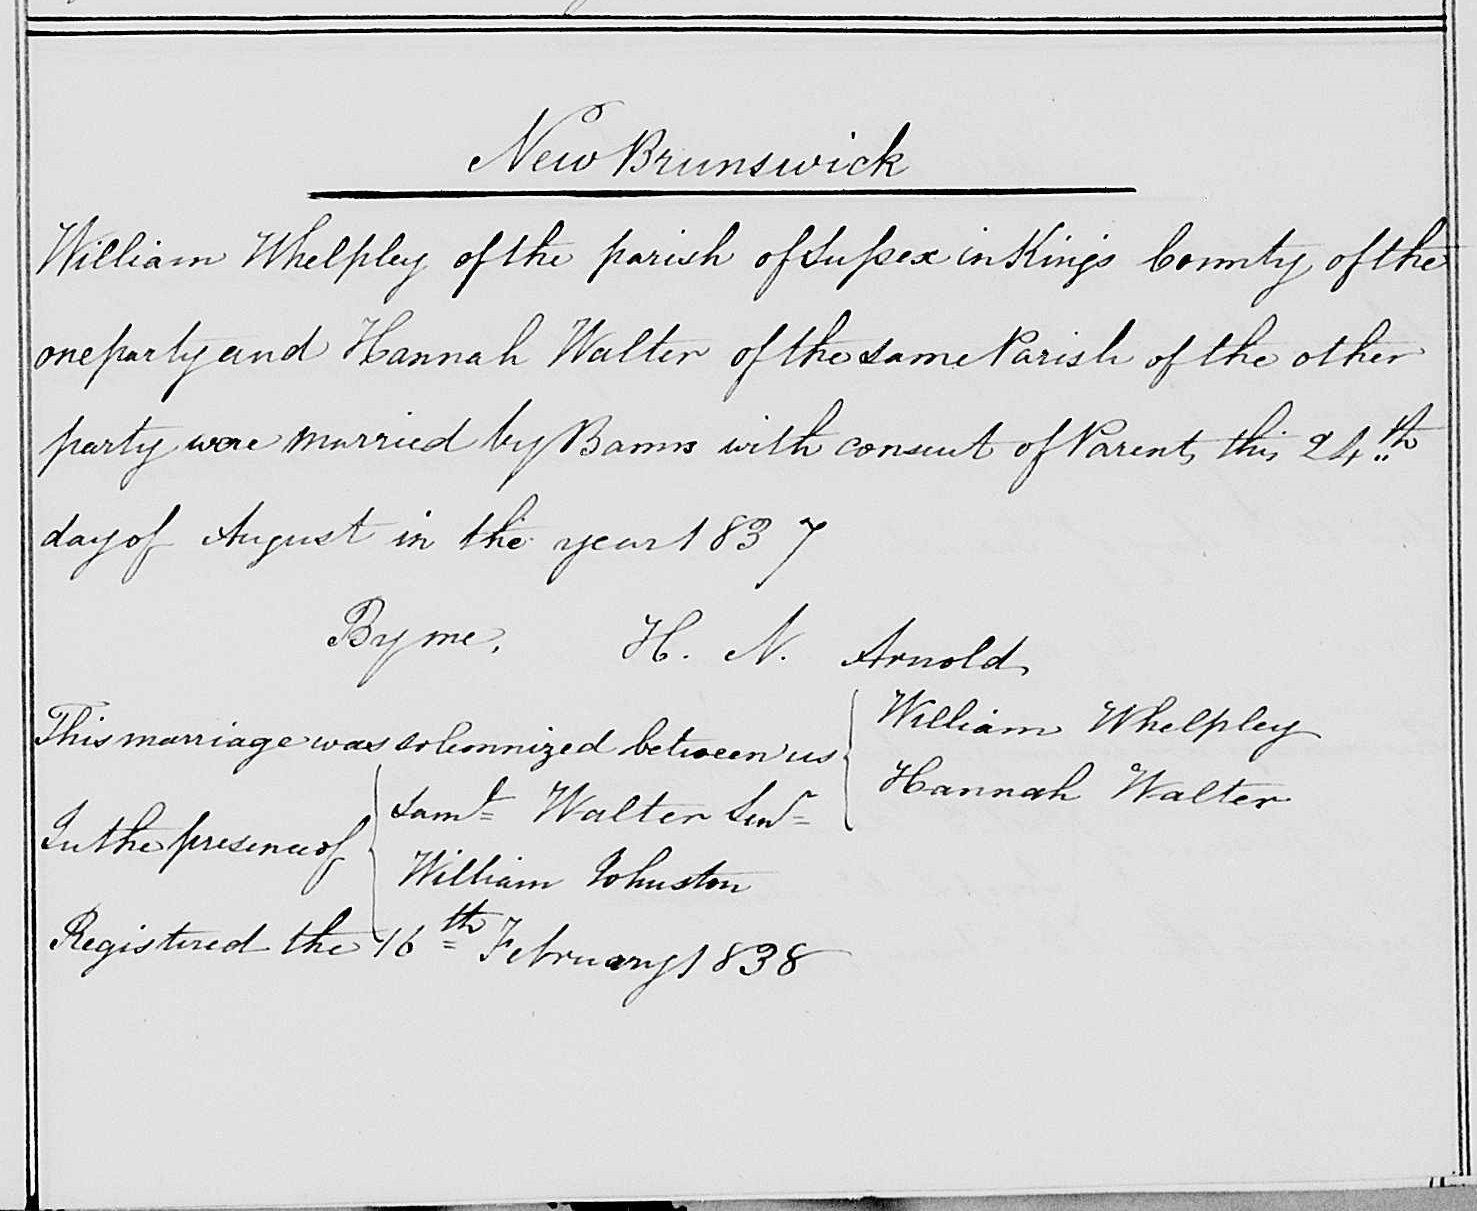 New Brunswick
William Whelpley of the parish of Sussex in Kings County of the
one party and Hannah Walter of the same Parish of the other
party were married by Banns with consent of Parents this 24th
day of August in the year 1837
By me, H. N. Arnold
This marriage was solemnized between us { William Whelpley
Hannah Walter
In the presence of { Saml Walter Senr
William Johnston
Registered the 16th February 1838